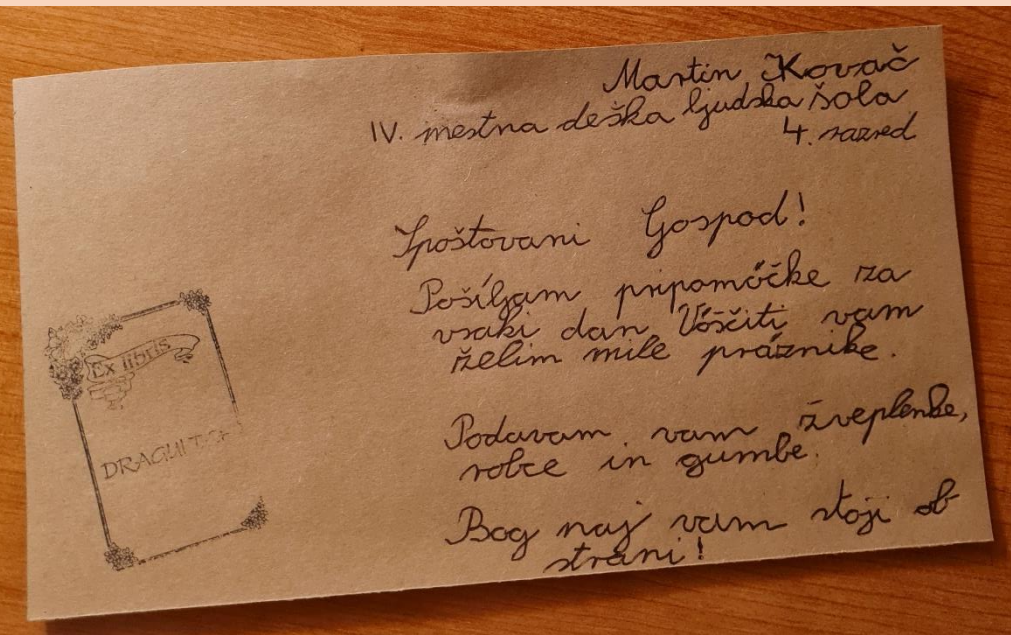 Martin Kovač
IV. mestna deška ljudska šola
4. razred
Spoštovani Gospod!
Pošíljam pripomóčke za
vsaki dan. Vóščiti vam
želim mile práznike.
Podavam vam žveplenke,
robce in gumbe.
Bog naj vam stoji ob
strani!
Ex libris